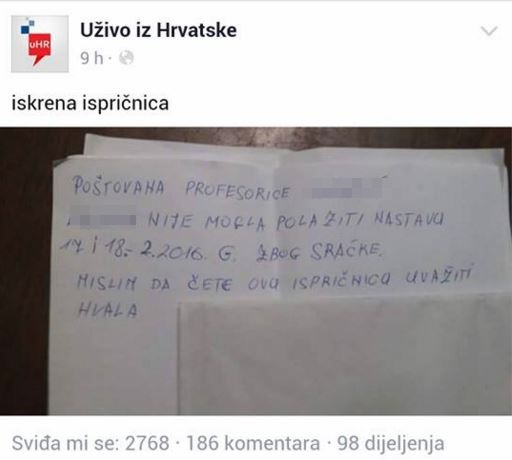 uHR
Uživo iz Hrvatske
9 h
iskrena ispričnica
POŠTOVANA PROFESORICE
NIJE MOGLA POLAŽITI NASTAVU
17 i 18.2.2016. G. ZBOG SRAČKE.
MISLIM DA ČETE OVU ISPRIČNICU UVAŽITI
HVALA
Sviđa mi se: 2768 · 186 komentara · 98 dijeljenja